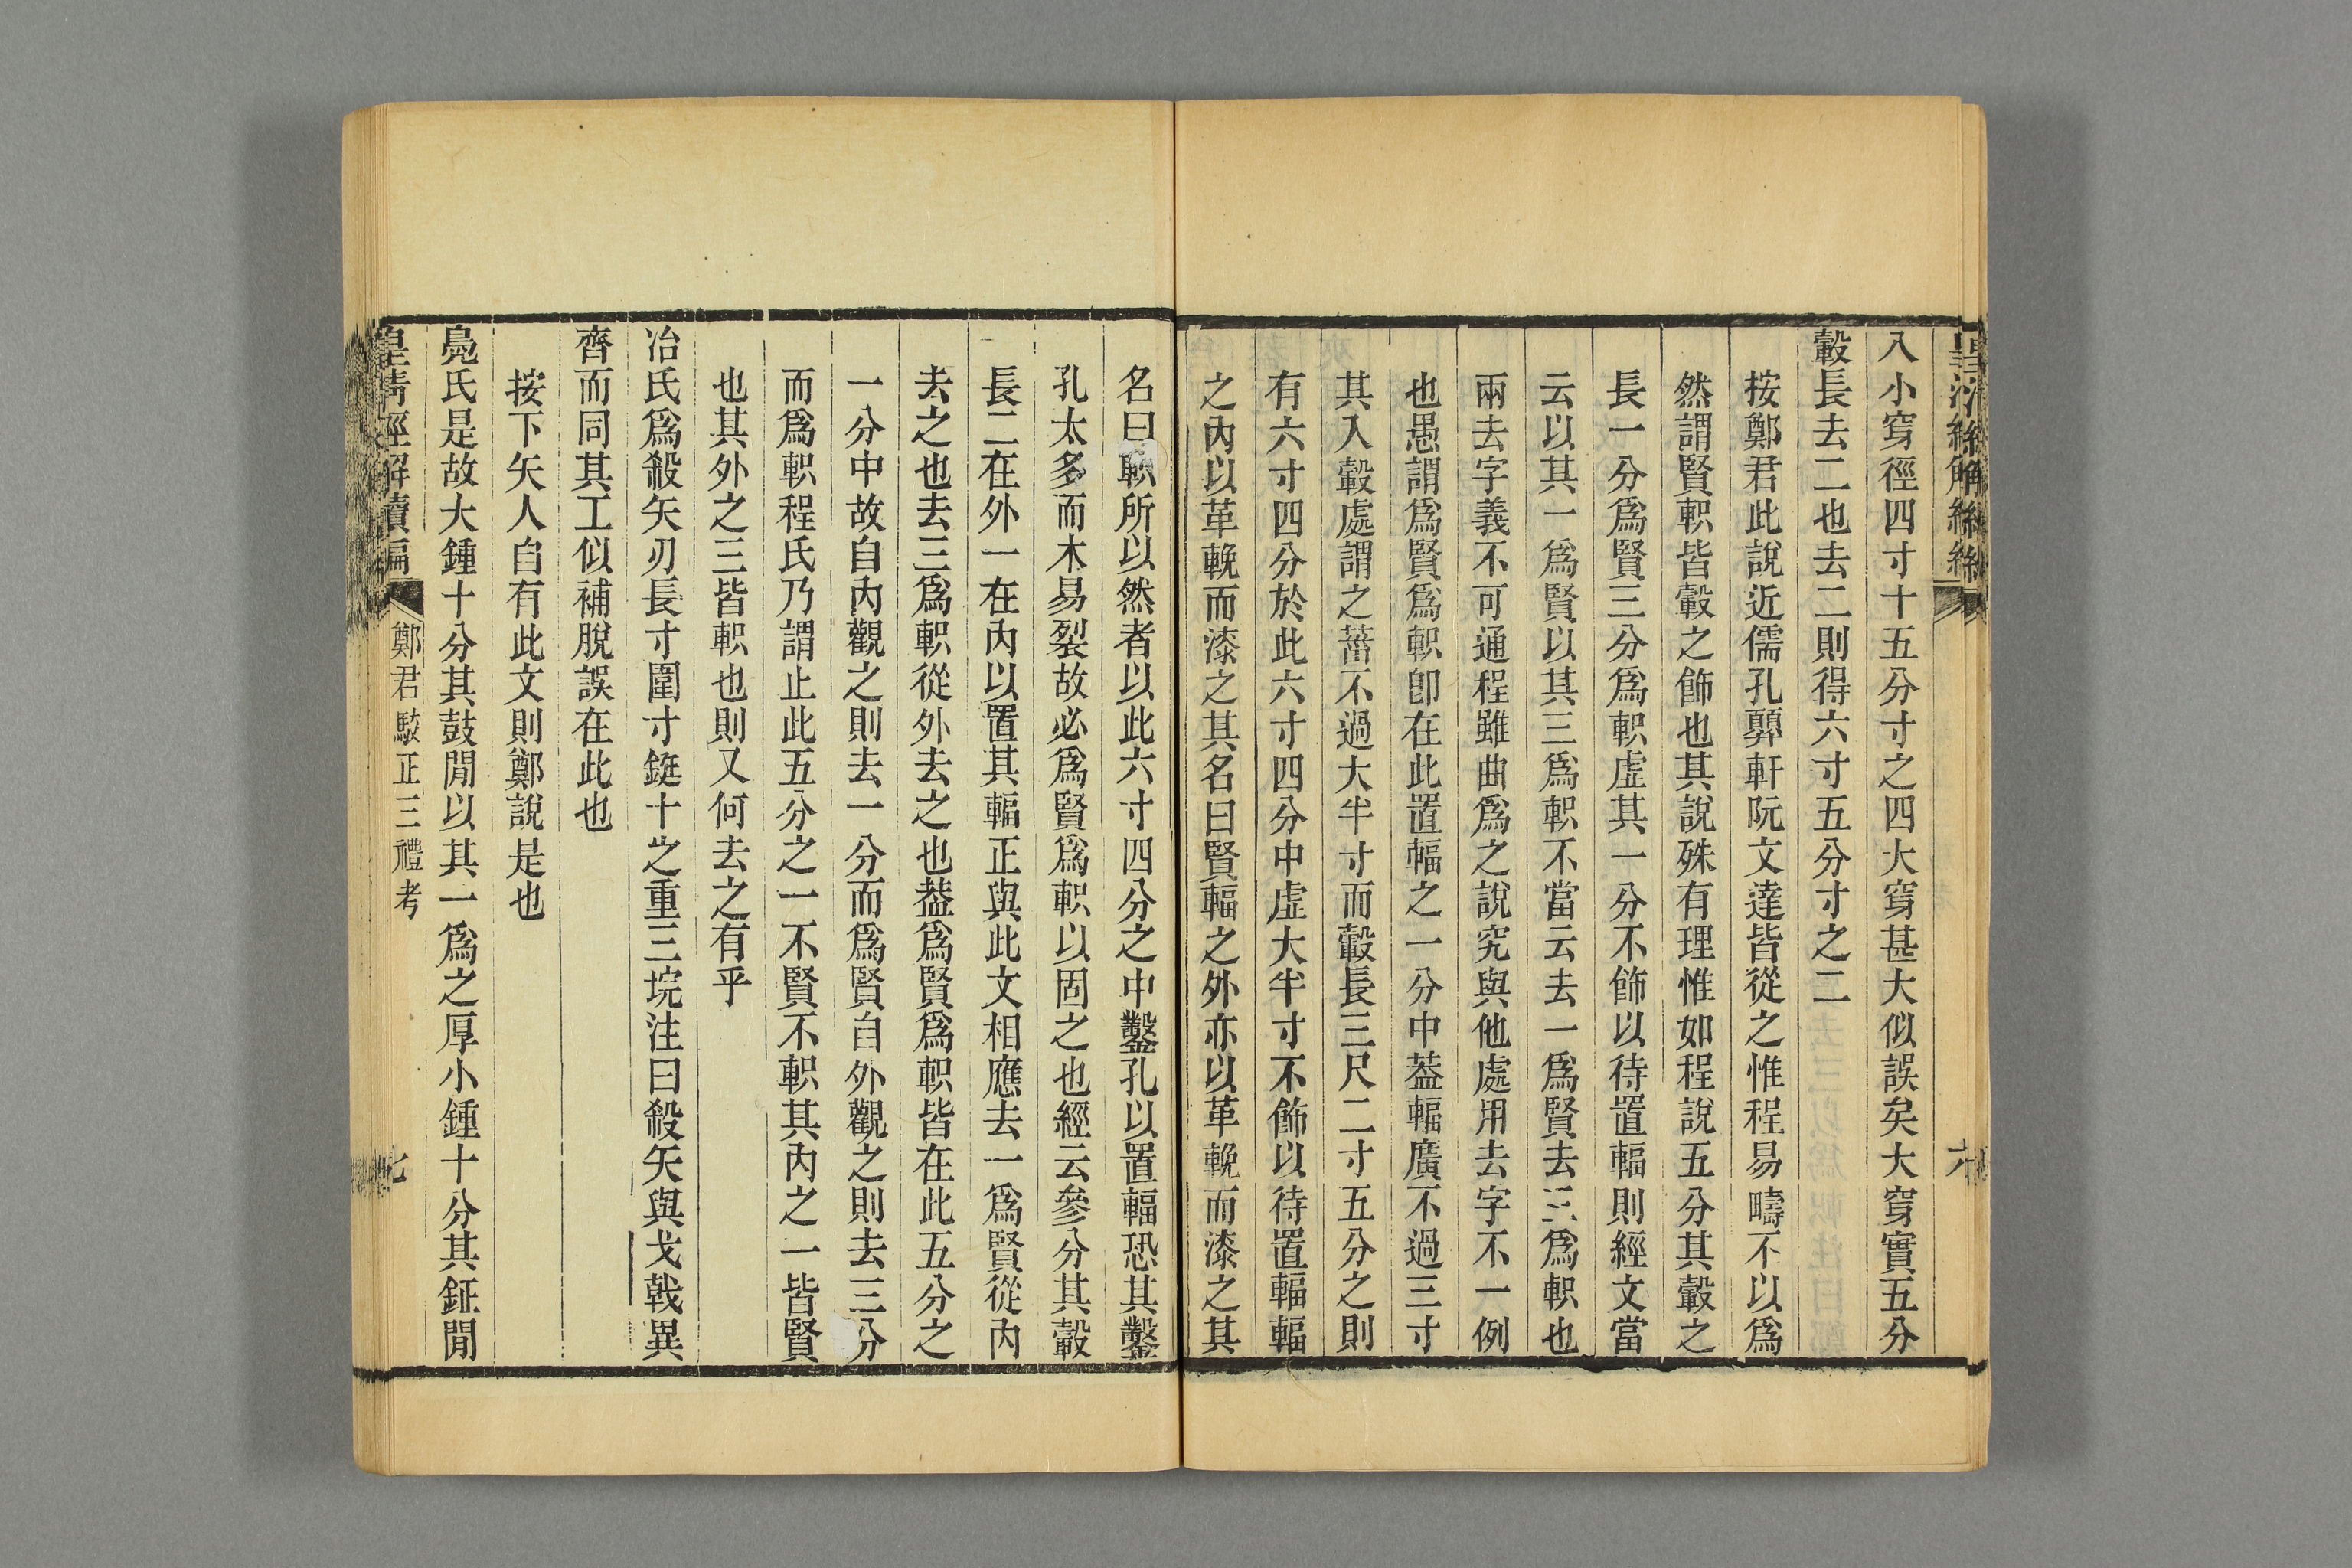 入小穿徑四寸十五分寸之四大穿甚大似誤矣大穿實五分
轂長去二也去二則得六寸五分寸之二
按鄭君此說近儒孔顨軒阮文達皆從之惟程易疇不以爲
然謂賢軹皆轂之飾也其說殊有理惟如程說五分其轂之
長一分爲賢三分爲軹虛其一分不飾以待置輻則經文當
云以其一爲賢以其三爲軹不當云去一爲賢去三爲軹也
兩去字義不可通程雖曲爲之說究與他處用去字不一例
也愚謂爲賢爲軹卽在此置輻之一分中葢輻廣不過三寸
其入轂處謂之菑不過大半寸而轂長三尺二寸五分之則
有六寸四分於此六寸四分中虛大半寸不飾以待置輻輻
之內以革輓而漆之其名曰賢輻之外亦以革輓而漆之其
名曰軹所以然者以此六寸四分之中鑿孔以置輻恐其鑿
孔太多而木易裂故必爲賢爲軹以固之也經云參分其轂
長二在外一在內以置其輻正與此文相應去一爲賢從內
去之也去三爲軹從外去之也葢爲賢爲軹皆在此五分之
一分中故自內觀之則去一分而爲賢自外觀之則去三分
而爲軹程氏乃謂止此五分之一不賢不軹其內之一皆賢
也其外之三皆軹也則又何去之有乎
冶氏爲殺矢刃長寸圍寸鋌十之重三垸注曰殺矢與戈戟異
齊而同其工似補脫誤在此也
按下矢人自有此文則鄭說是也
鳧氏是故大鍾十分其鼓閒以其一爲之厚小鍾十分其鉦閒
皇清經解續編
鄭君駮正三禮考
七